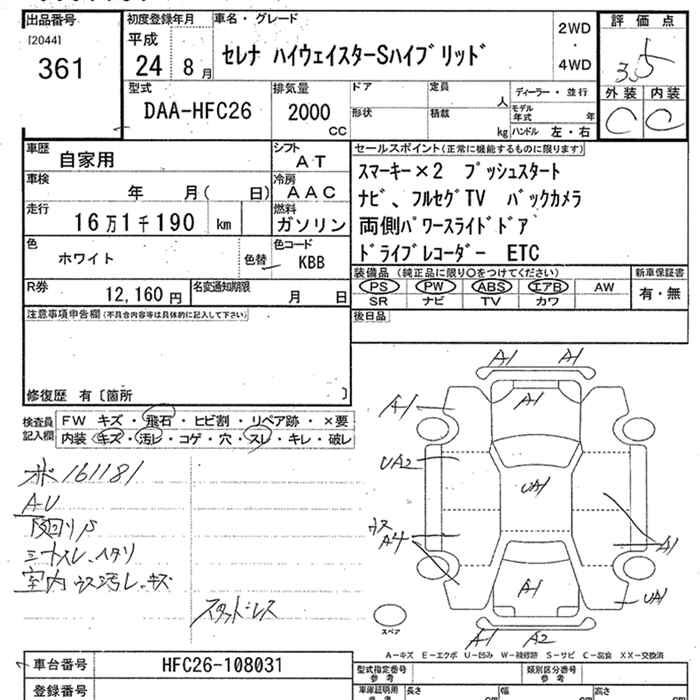 出品番号
[2044]
361
初度登録年月
平成
24 8月
車名・グレード
セレナ ハイウェイスターSハイブリッド
2WD
・
4WD
評価点
3.5
外装 内装
C C
型式
DAA-HFC26
排気量
2000
CC
ドア
形状
定員
人
積載
kg
ディーラー・並行
モデル年式 年
ハンドル 左・右
車歴
自家用
シフト
AT
車検
年 月( 日)
冷房
AAC
走行
16万1千190 km
燃料
ガソリン
色
ホワイト
色替
色コード
KBB
R券
12,160円
名変通知期限
月 日
セールスポイント(正常に機能するものに限ります)
スマーキー×2 プッシュスタート
ナビ、フルセグTV バックカメラ
両側パワースライドドア
ドライブレコーダー ETC
装備品 (純正品に限り○をつけてください)
PS PW ABS エアB AW
SR ナビ TV カワ
新車保証書
有・無
後日品
注意事項申告欄(不具合内容等は具体的に記入して下さい)
修復歴 有〔箇所 〕
検査員記入欄
FW キズ・飛石・ヒビ割・リペア跡・×要
内装・キズ・汚レ・コゲ・穴・スレ・キレ・破レ
ボ 161181
A・U
室内 ウス汚レ・キズ
スタッドレス
A1 A1
A1
A1
UA2
UA1
ウス
A4
A1
A1
UA1
A1 A2
スペア
A−キズ E−エクボ U−凹み W−補修跡 S−サビ C−腐食 XX−交換済
車台番号
HFC26-108031
登録番号
型式指定番号
参考
類別区分番号
参考
車庫証明用
参考
長さ cm
幅 cm
高さ cm